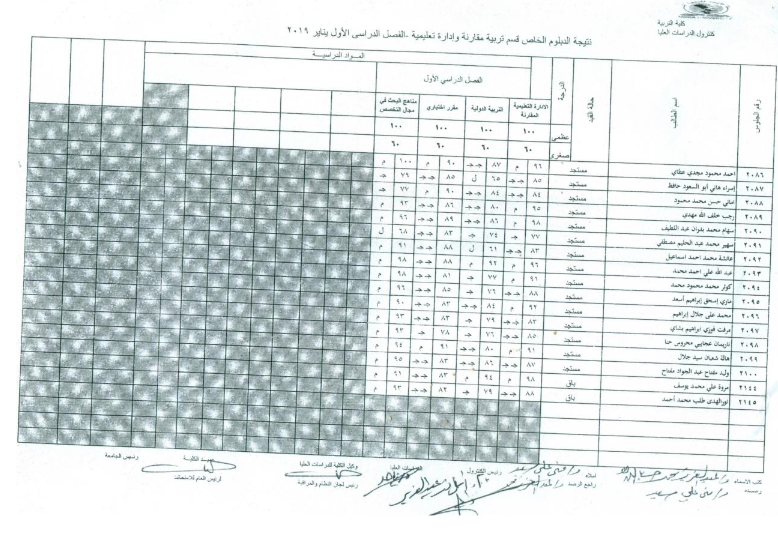 كلية التربية
كنترول الدراسات العليا
نتيجة الدبلوم الخاص قسم تربية مقارنة وإدارة تعليمية -الفصل الدراسى الأول يناير ٢٠١٩
رقم الجلوس
اسم الطالب
حالة القيد
الدرجة
المواد الدراسية
الفصل الدراسى الأول
الادارة التعليمية المقارنة
التربية الدولية
مقرر اختيارى
مناهج البحث فى مجال التخصص
عظمى ١٠٠ ١٠٠ ١٠٠ ١٠٠
صغرى ٦٠ ٦٠ ٦٠ ٦٠
٢٠٨٦ احمد محمود مجدي عطاي مستجد ٩٦ م ٨٧ جـجـ ٩٠ م ١٠٠ م
٢٠٨٧ إسراء هاني أبو السعود حافظ مستجد ٨٥ جـجـ ٦٥ ل ٨٥ جـجـ ٧٩ جـ
٢٠٨٨ اماني حسن محمد محمود مستجد ٨٤ جـجـ ٨٤ جـجـ ٩٠ م ٧٧ جـ
٢٠٨٩ رجب خلف الله مهدي مستجد ٩٥ م ٨٠ جـجـ ٨٦ جـجـ ٩٢ م
٢٠٩٠ سهام محمد بدوان عبد اللطيف مستجد ٩٨ م ٨٦ جـجـ ٨٩ جـجـ ٩٦ م
٢٠٩١ سهير محمد عبد الحليم مصطفي مستجد ٧٧ جـ ٧٤ جـ ٨٣ جـجـ ٦٨ ل
٢٠٩٢ عائشة محمد احمد اسماعيل مستجد ٨٣ جـجـ ٦١ ل ٨٨ جـجـ ٩١ م
٢٠٩٣ عبد الله علي احمد محمد مستجد ٩٦ م ٩٢ م ٨٨ جـجـ ٩٨ م
٢٠٩٤ كوثر محمد محمود محمد مستجد ٩١ م ٧٧ جـ ٨١ جـجـ ٩٨ م
٢٠٩٥ ماري إسحق إبراهيم أسعد مستجد ٨٨ جـجـ ٧٦ جـ ٨٥ جـجـ ٩٦ م
٢٠٩٦ محمد على جلال إبراهيم مستجد م ٨٤ جـجـ ٨٣ جـجـ ٩٠ م
٢٠٩٧ مرفت فوزي ابراهيم بشاي مستجد ٨٣ جـجـ ٧٩ جـ ٨٣ جـجـ ٩٣ م
٢٠٩٨ ناريمان عجايبي محروس حنا مستجد ٨٥ جـجـ ٧٦ جـ ٧٨ جـ ٩٣ م
٢٠٩٩ هالة شعبان سيد جلال مستجد ٩١ م ٨٠ جـجـ ٩١ م ٦٤ م
٢١٠٠ وليد مفتاح عبد الجواد مفتاح مستجد ٨٧ جـجـ ٨٦ جـجـ ٨٣ جـجـ ٩٥ م
٢١٤٤ مروة علي محمد يوسف باق ٩٨ م ٩٤ م ٨٣ جـجـ ٦١ م
٢١٤٥ نورالهدى طلب محمد أحمد باق ٨٨ جـجـ ٧٩ جـ ٨٢ جـجـ ٩٣ م
كتب الاسماء
رصده
املاه
راجع الرصد
رئيس الكنترول
الدراسات العليا
وكيل الكلية للدراسات العليا
رئيس لجان النظام والمراقبة
عميد الكلية
الرئيس العام للامتحانات
رئيس الجامعة